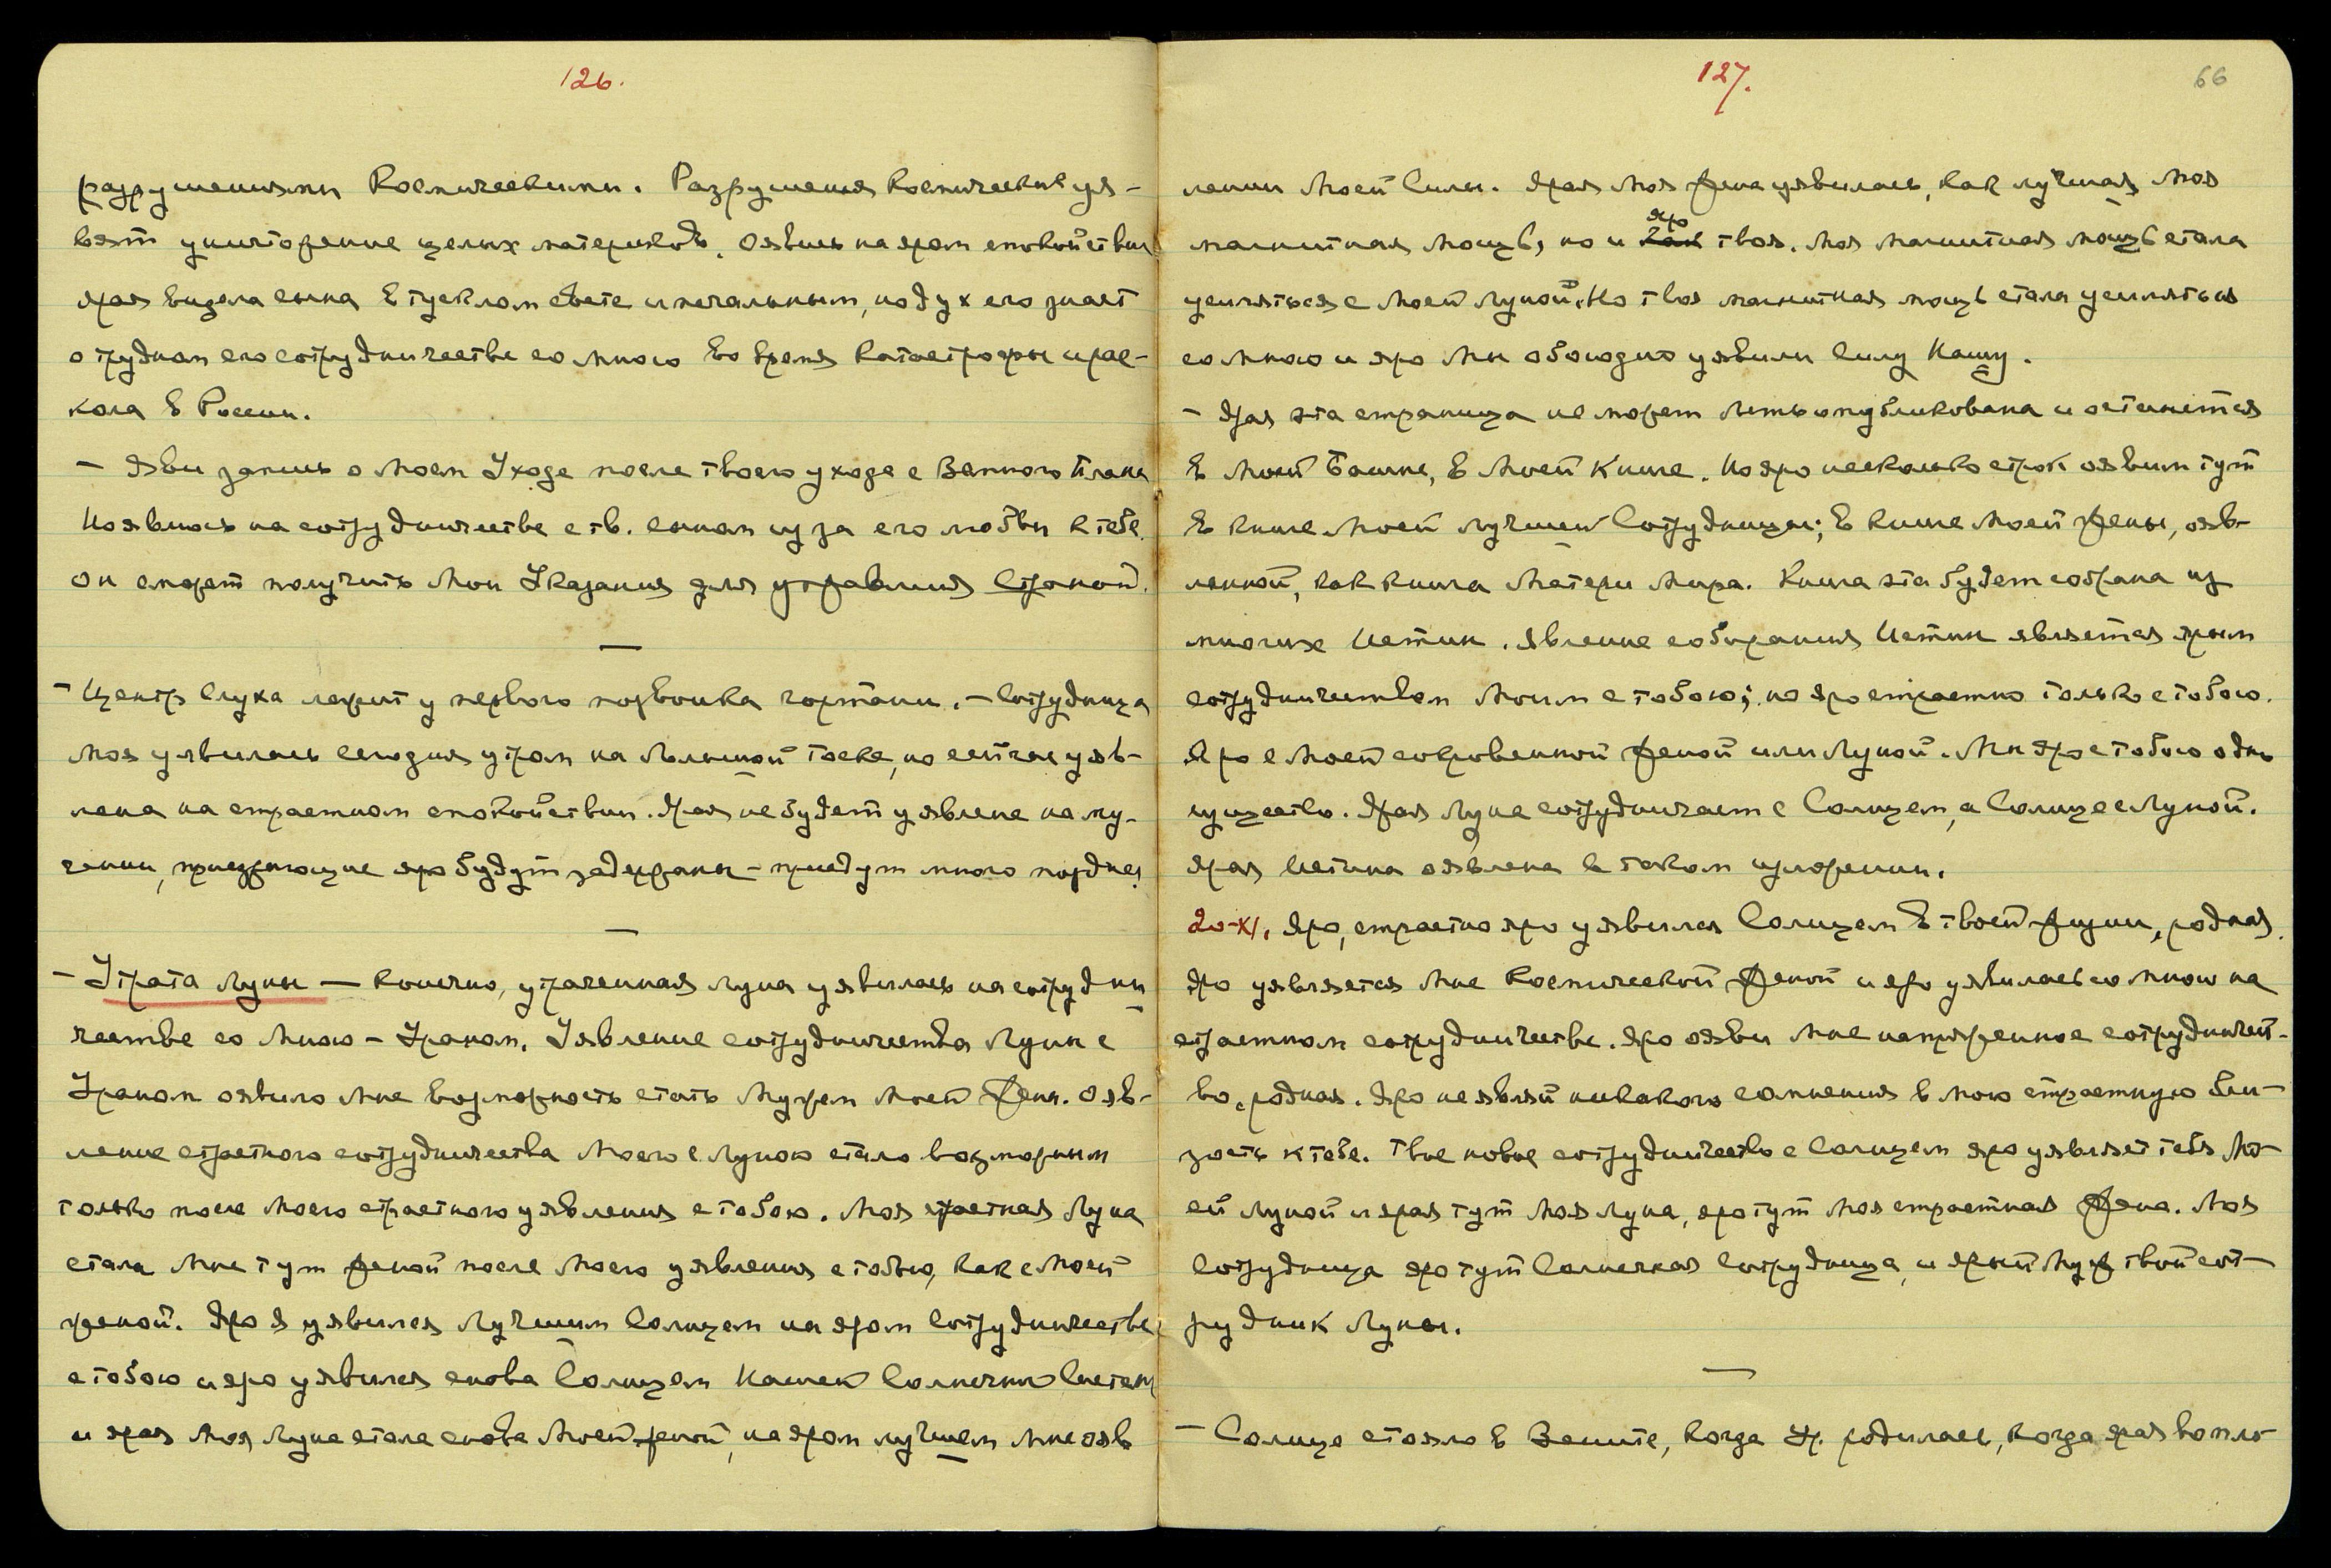 126.
разрушениями Космическими. Разрушения Космические уя-
вят уничтожение целых материков. Оявись на яром спокойствии
Ярая видела сына в тусклом свете и печальным, но дух его знает
о трудном его сотрудничестве со мною во время катастрофы и рас-
кола в России.
— Яви запись о Моем Уходе после твоего ухода с Земного Плана
Но явлюсь на сотрудничестве с тв. сыном из за его любви к тебе.
Он сможет получить Мои Указания для управления Страной.
—
— Центр Слуха лежит у первого позвонка гортани. — Сотрудница
Моя уявилась сегодня утром на большой тоске, но сейчас уяв-
лена на страстном спокойствии. Ярая не будет уявлена на му-
чении, приезжающие яро будут задержаны — приедут много позднее.
—
— Утрата Луны — конечно, утраченная Луна уявилась на сотрудни
честве со Мною — Ураном. Уявление сотрудничества Луны с
Ураном оявило Мне возможность стать Мужем Моей Жены.Ояв-
ление страстного сотрудничества Моего с Луною стало возможным
только после Моего страстного уявления с тобою. Моя страстная Луна
стала Мне тут женой после Моего уявления с тобою, как с Моей
женой. Яро Я уявился Лучшим Солнцем на яром Сотрудничестве
с тобою и яро уявился снова Солнцем Нашей Солнечной Системы
и ярая Моя Луна стала снова Моей женой, на яром лучшем Мне ояв
127.
66
лении Моей Силы. Ярая Моя Жена уявилась, как лучшая Моя
магнитная мощь, но и яро твоя. Моя магнитная мощь стала
усиляться с Моей Луной. Но твоя магнитная мощь стала усиляться
со мною и яро Мы обоюдно уявили Силу Нашу.
— Ярая эта страница не может быть опубликована и останется
в Моей Башне, в Моей Книге. Но яро несколько строк оявим тут
в книге Моей лучшей Сотрудницы; в книге Моей Жены,ояв-
ленной, как книга Матери Мира. Книга эта будет собрана из
многих Истин. Явление собирания Истин является ярым
сотрудничеством Моим с тобою; но яро страстно только с тобою.
Яро с Моей сокровенной Женой или Луной. Мы яро с тобою одно
существо. Ярая Луна сотрудничает с Солнцем, а Солнце с Луной.
Ярая Истина оявлена в таком изложении.
20-XI. Яро, страстно яро уявился Солнцем в твоей жизни, родная.
Яро уявляется Мне Космической Женой и яро уявилась со мною на
страстном сотрудничестве. Яро ояви Мне напряженное сотрудничест-
во, родная. Яро не являй никакого сомнения в мою страстную бли-
зость к тебе. Твое новое сотрудничество с Солнцем яро уявляет тебя Мо-
ей Луной и ярая тут Моя Луна, яро тут Моя страстная Жена. Моя
Сотрудница яро тут Солнечная Сотрудница, и ярый Муж твой сот-
рудник Луны.
—
— Солнце стояло в Зените, когда Ур. родилась, когда ярая вопло-